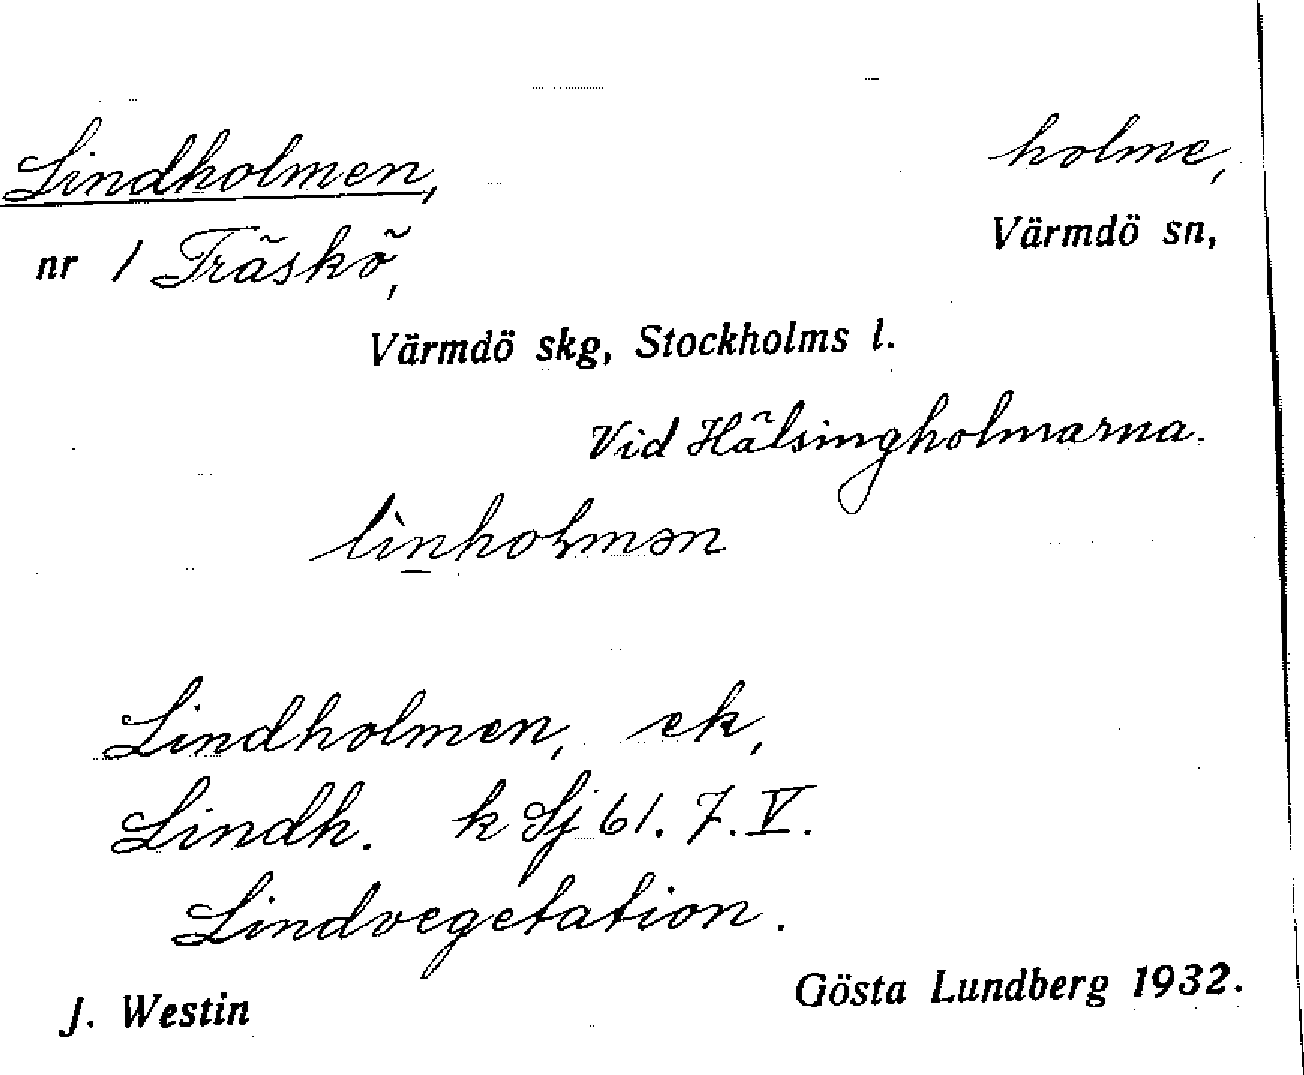 Lindholmen, holme,
nr 1 Träskö, Värmdö sn,
Värmdö skg, Stockholms l.
Vid Hälsingholmarna.
lìn̲hoɫmən
Lindholmen, ek,
Lindh. k Sj 61. 7. V.
Lindvegetation.
J. Westin Gösta Lundberg 1932.